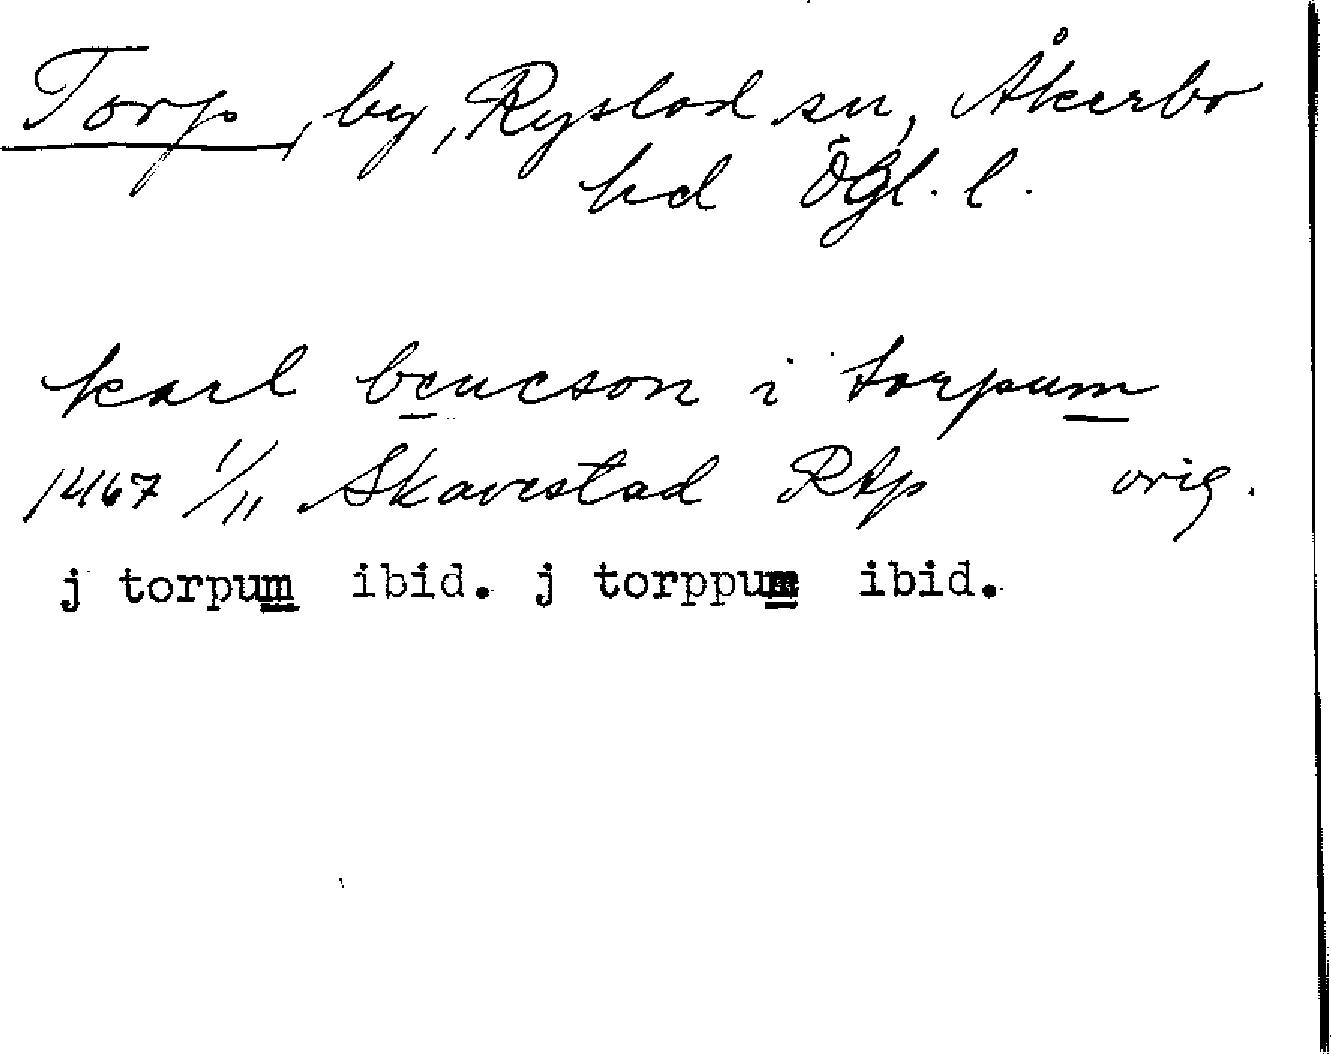 Torp, by, Rystad sn, Åkerbo
hd Ögl. l.
karl bencson i torpum
1467 1/11 Skavestad RAp orig.
j torpum ibid. j torppum ibid.